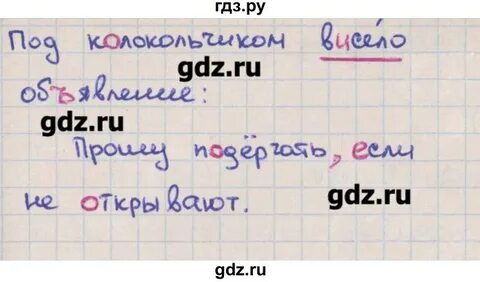 гдз.ру
Под колокольчиком висело
gdz.ru
объявление:
gdz.ru
Прошу подёргать, если
не открывают.
gdz.ru
gdz.ru